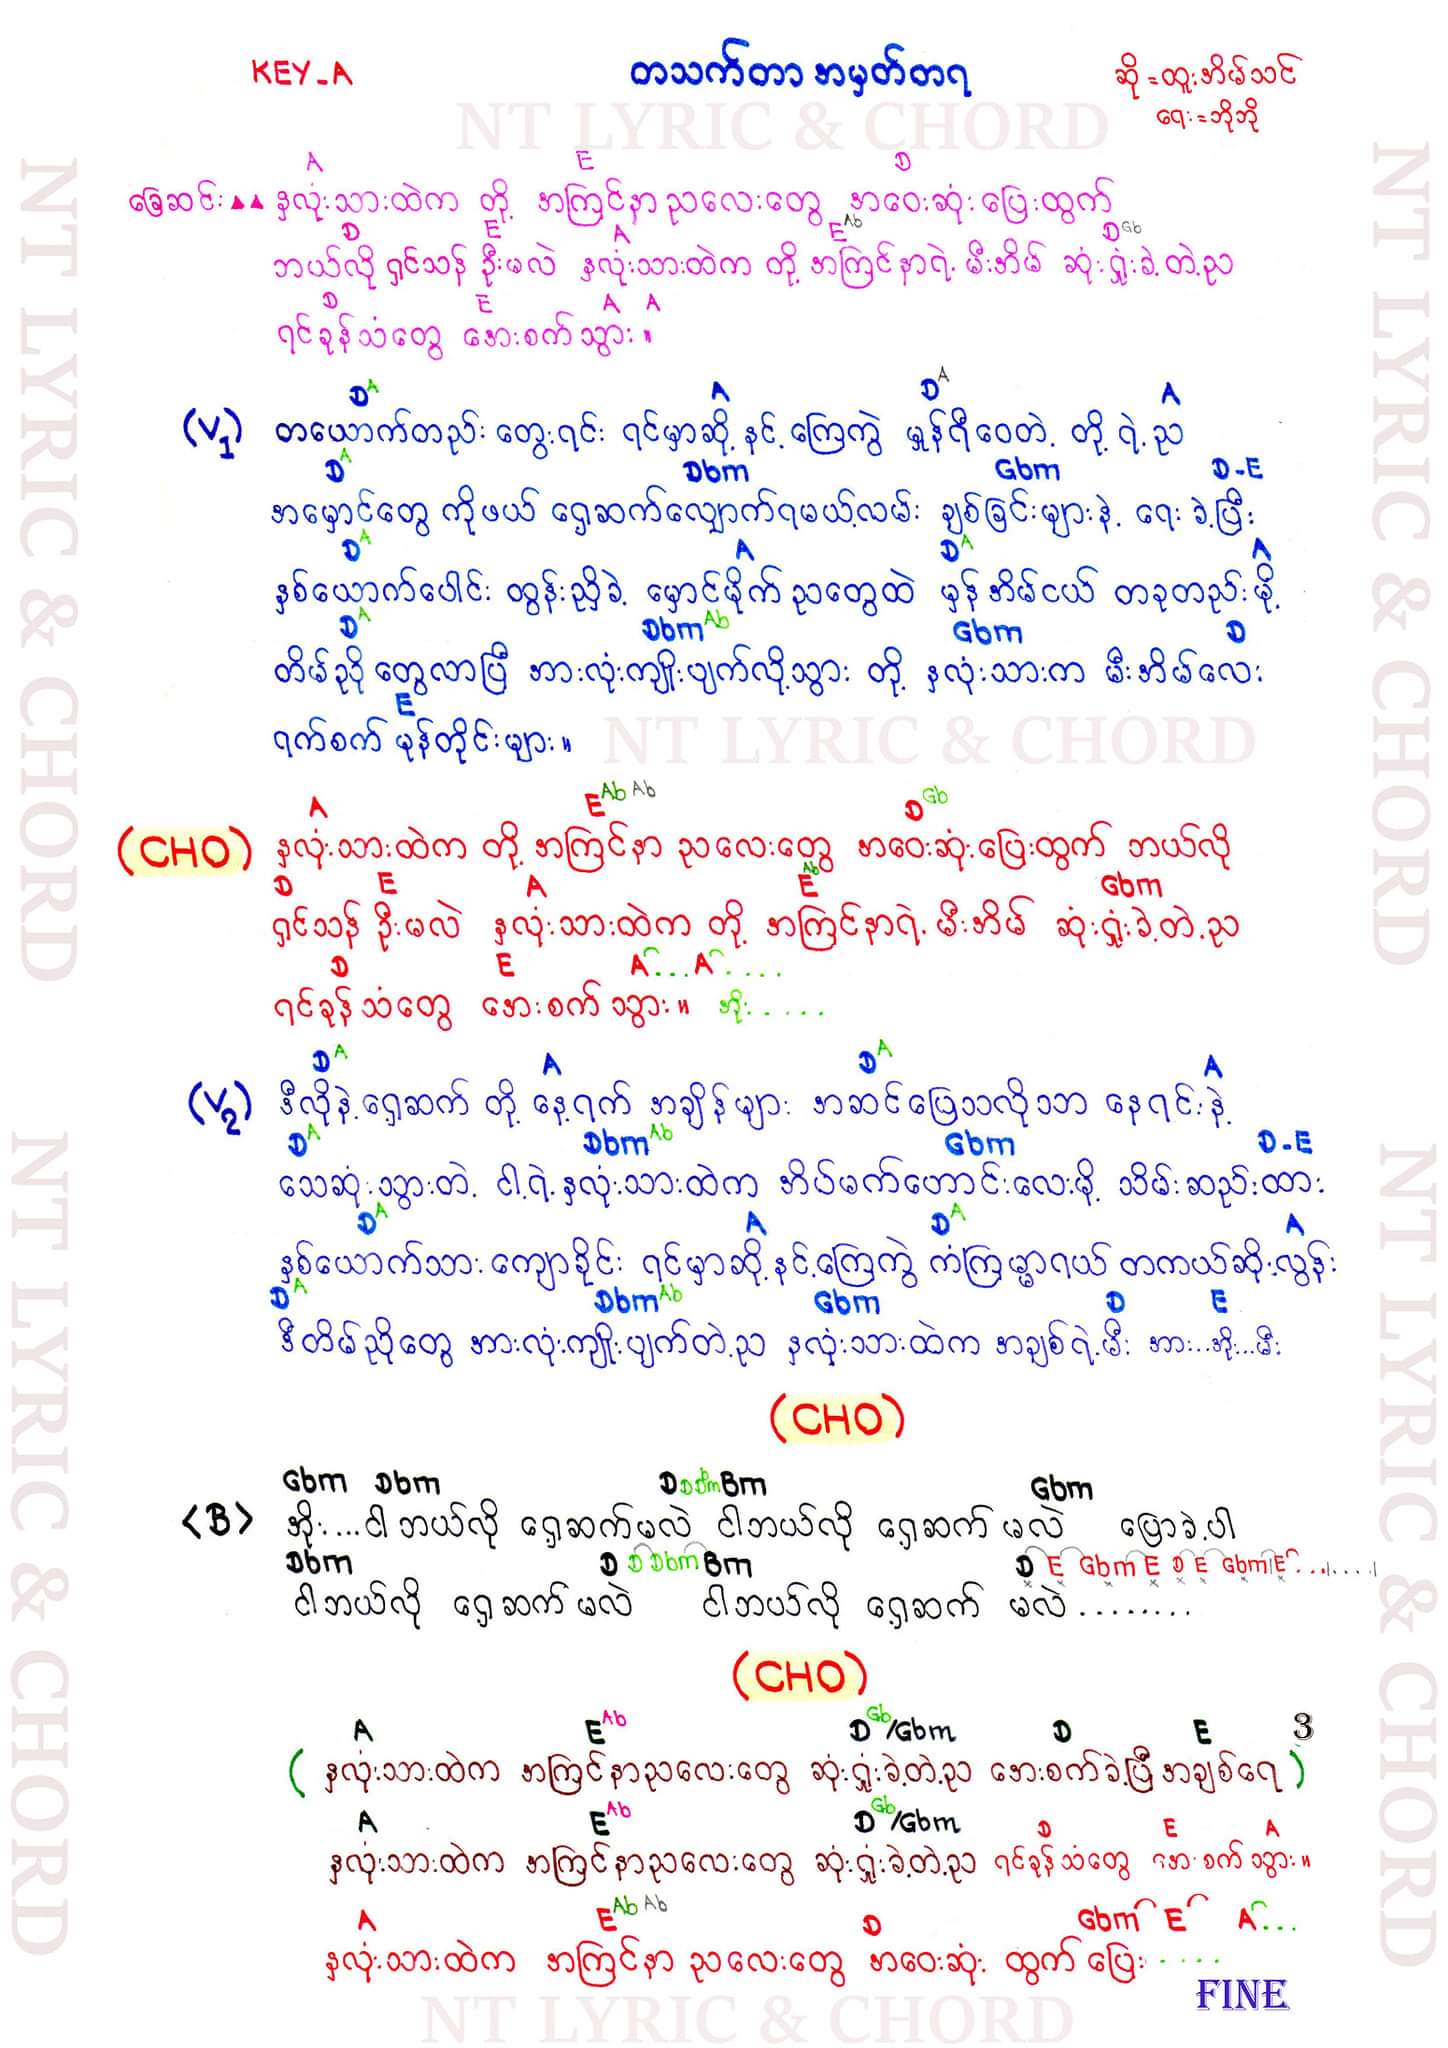 KEY-A တသက်တာ အမှတ်တရ ဆို = ထူးအိမ်သင်
ရေး = ဘိုဘို
NT LYRIC & CHORD
A E D
ခြေဆင်း နှလုံးသားထဲက တို့ အကြင်နာ ညလေးတွေ အဝေးဆုံး ပြေးထွက်
D E A E Ab D Gb
ဘယ်လို ရှင်သန် ဦးမလဲ နှလုံးသားထဲက တို့ အကြင်နာရဲ့ မီးအိမ် ဆုံးရှုံးခဲ့တဲ့ည
D E A A
ရင်ခုန်သံတွေ အေးစက်သွား။
D A A D A A
(V1) တယောက်တည်း တွေးရင်း ရင်မှာဆို့နင့် ကြေကွဲ မှုန်ရီဝေတဲ့ တို့ ရဲ့ ည
D A Dbm Gbm D-E
အမှောင်တွေ ကိုဖယ် ရှေ့ဆက်လျှောက်ရမယ့်လမ်း ချစ်ခြင်းများနဲ့ ရေး ခဲ့ပြီး
D A A D A A
နှစ်ယောက်ပေါင်း ထွန်းညှိခဲ့ မှောင်မိုက် ညတွေထဲ မှန်အိမ်ငယ် တခုတည်းမို့
D A Dbm Ab Gbm D
တိမ်ညို တွေလာပြီ အားလုံးကျိုးပျက်လို့သွား တို့ နှလုံးသားက မီးအိမ်လေး
E
ရက်စက် မုန်တိုင်းများ။
NT LYRIC & CHORD
A E Ab Ab D Gb
(CHO) နှလုံးသားထဲက တို့ အကြင်နာ ညလေးတွေ အဝေးဆုံးပြေးထွက် ဘယ်လို
D E A E Ab Gbm
ရှင်သန် ဦးမလဲ နှလုံးသားထဲက တို့ အကြင်နာရဲ့ မီးအိမ် ဆုံးရှုံးခဲ့တဲ့ည
D E A...A....
ရင်ခုန်သံတွေ အေးစက်သွား။ အိုး.....
D A A D A A
(V2) ဒီလိုနဲ့ ရှေ့ဆက် တို့ နေ့ရက် အချိန်များ အဆင်ပြေသလိုသာ နေရင်းနဲ့
D A Dbm Ab Gbm D-E
သေဆုံးသွားတဲ့ ငါ့ရဲ့ နှလုံးသားထဲက အိပ်မက်ဟောင်းလေးမို့ သိမ်းဆည်းထား
D A A D A A
နှစ်ယောက်သား ကျောခိုင်း ရင်မှာဆို့နင့်ကြေကွဲ ကံကြမ္မာရယ် တကယ်ဆိုးလွန်း
D A Dbm Ab Gbm D E
ဒီတိမ်ညိုတွေ အားလုံးကျိုးပျက်တဲ့ည နှလုံးသားထဲက အချစ်ရဲ့မီး အား..အိုး..မီး
(CHO)
Gbm Dbm D D Dbm Bm Gbm
<B> အိုး...ငါဘယ်လို ရှေ့ဆက်မလဲ ငါဘယ်လို ရှေ့ဆက် မလဲ ပြောခဲ့ပါ
Dbm D D Dbm Bm D E Gbm E D E Gbm E
ငါဘယ်လို ရှေ့ဆက်မလဲ ငါဘယ်လို ရှေ့ဆက် မလဲ ........
(CHO)
A E Ab D Gb/Gbm D E 3
(နှလုံးသားထဲက အကြင်နာညလေးတွေ ဆုံးရှုံးခဲ့တဲ့ည အေးစက်ခဲ့ပြီ အချစ်ရေ)
A E Ab D Gb/Gbm D E A
နှလုံးသားထဲက အကြင်နာညလေးတွေ ဆုံးရှုံးခဲ့တဲ့ည ရင်ခုန်သံတွေ အေးစက်သွား။
A E Ab Ab D Gbm E A...
နှလုံးသားထဲက အကြင်နာ ညလေးတွေ အဝေးဆုံး ထွက်ပြေး ....
FINE
NT LYRIC & CHORD
NT LYRIC & CHORD
NT LYRIC & CHORD
NT LYRIC & CHORD
NT LYRIC & CHORD